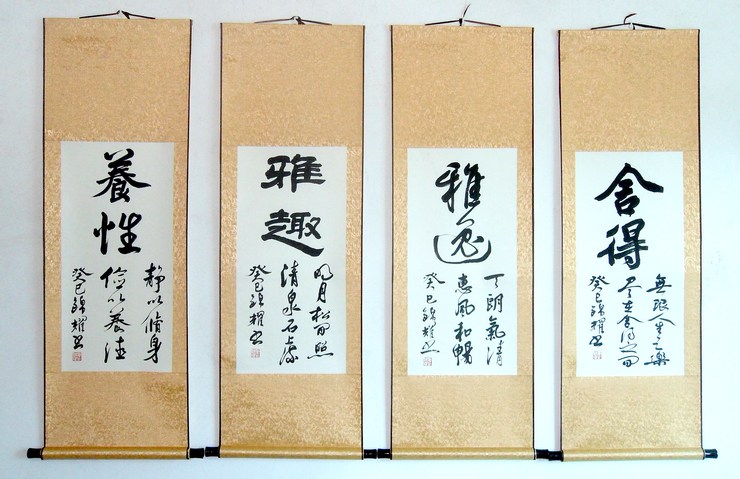 養性
静以脩身
儉以養德
癸巳錦耀書
雅趣
明月松間照
清泉石上流
癸巳錦耀書
雅逸
天朗氣清
惠風和暢
癸巳錦耀書
舍得
無限人生之樂
尽在舍得之間
癸巳錦耀書